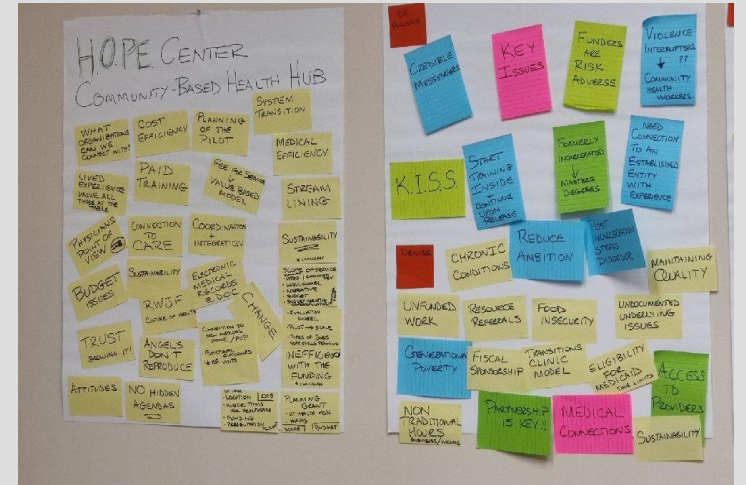 H.O.P.E. CENTER
COMMUNITY-BASED HEALTH HUB
SYSTEM
TRANSITION
WHAT
ORGANIZATIONS
CAN WE
CONNECT WITH?
COST
EFFICIENCY
PLANNING
OF THE
PILOT
MEDICAL
EFFICIENCY
LIVED
EXPERIENCE
VALUE ALL
THOSE AT THE
TABLE
PAID
TRAINING
FOR FEE SERVICE
VALUE BASED
MODEL
STREAM
LINING
PHYSICIANS
POINT OF
VIEW
CONNECTION
TO
CARE
COORDINATION
+
INTEGRATION
SUSTAINABILITY
BUDGET
ISSUES
SUSTAINABILITY
RWJF
CULTURE OF HEALTH
ELECTRONIC
MEDICAL
RECORDS
@ DOC
CHANGE
SCOPE OF SERVICE
BUDGET
EVALUATION
MODEL
TRUST
GROWING IT!
ANGELS
DON'T
REPRODUCE
CONNECTION TO
INEFFICIENCY
WITH THE
FUNDING
ATTITUDES
NO HIDDEN
AGENDAS
LOCATION
FUNDING
PLANNING
GRANT
BUDGET
CREDIBLE
MESSENGERS
KEY
ISSUES
FUNDERS
ARE
RISK
ADVERSE
VIOLENCE
INTERRUPTERS
??
COMMUNITY
HEALTH
WORKERS
K.I.S.S.
START
TRAINING
INSIDE
CONTINUE
UPON
RELEASE
FORMERLY
INCARCERATED
MASTERS
DEGREES
NEED
CONNECTION
TO AN
ESTABLISHED
ENTITY
WITH
EXPERIENCE
DENISE
CHRONIC
CONDITIONS
REDUCE
AMBITION
POST
INCARCERATION
STRESS
DISORDER
MAINTAINING
QUALITY
UNFUNDED
WORK
RESOURCE
REFERRALS
FOOD
INSECURITY
UNDOCUMENTED
UNDERLYING
ISSUES
GENERATIONAL
POVERTY
FISCAL
SPONSORSHIP
TRANSITIONS
CLINIC
MODEL
ELIGIBILITY
FOR
MEDICAID
TIME LIMITS
ACCESS
TO
PROVIDERS
NON
TRADITIONAL
HOURS
PARTNERSHIP
IS KEY!!
MEDICAL
CONNECTIONS
SUSTAINABILITY